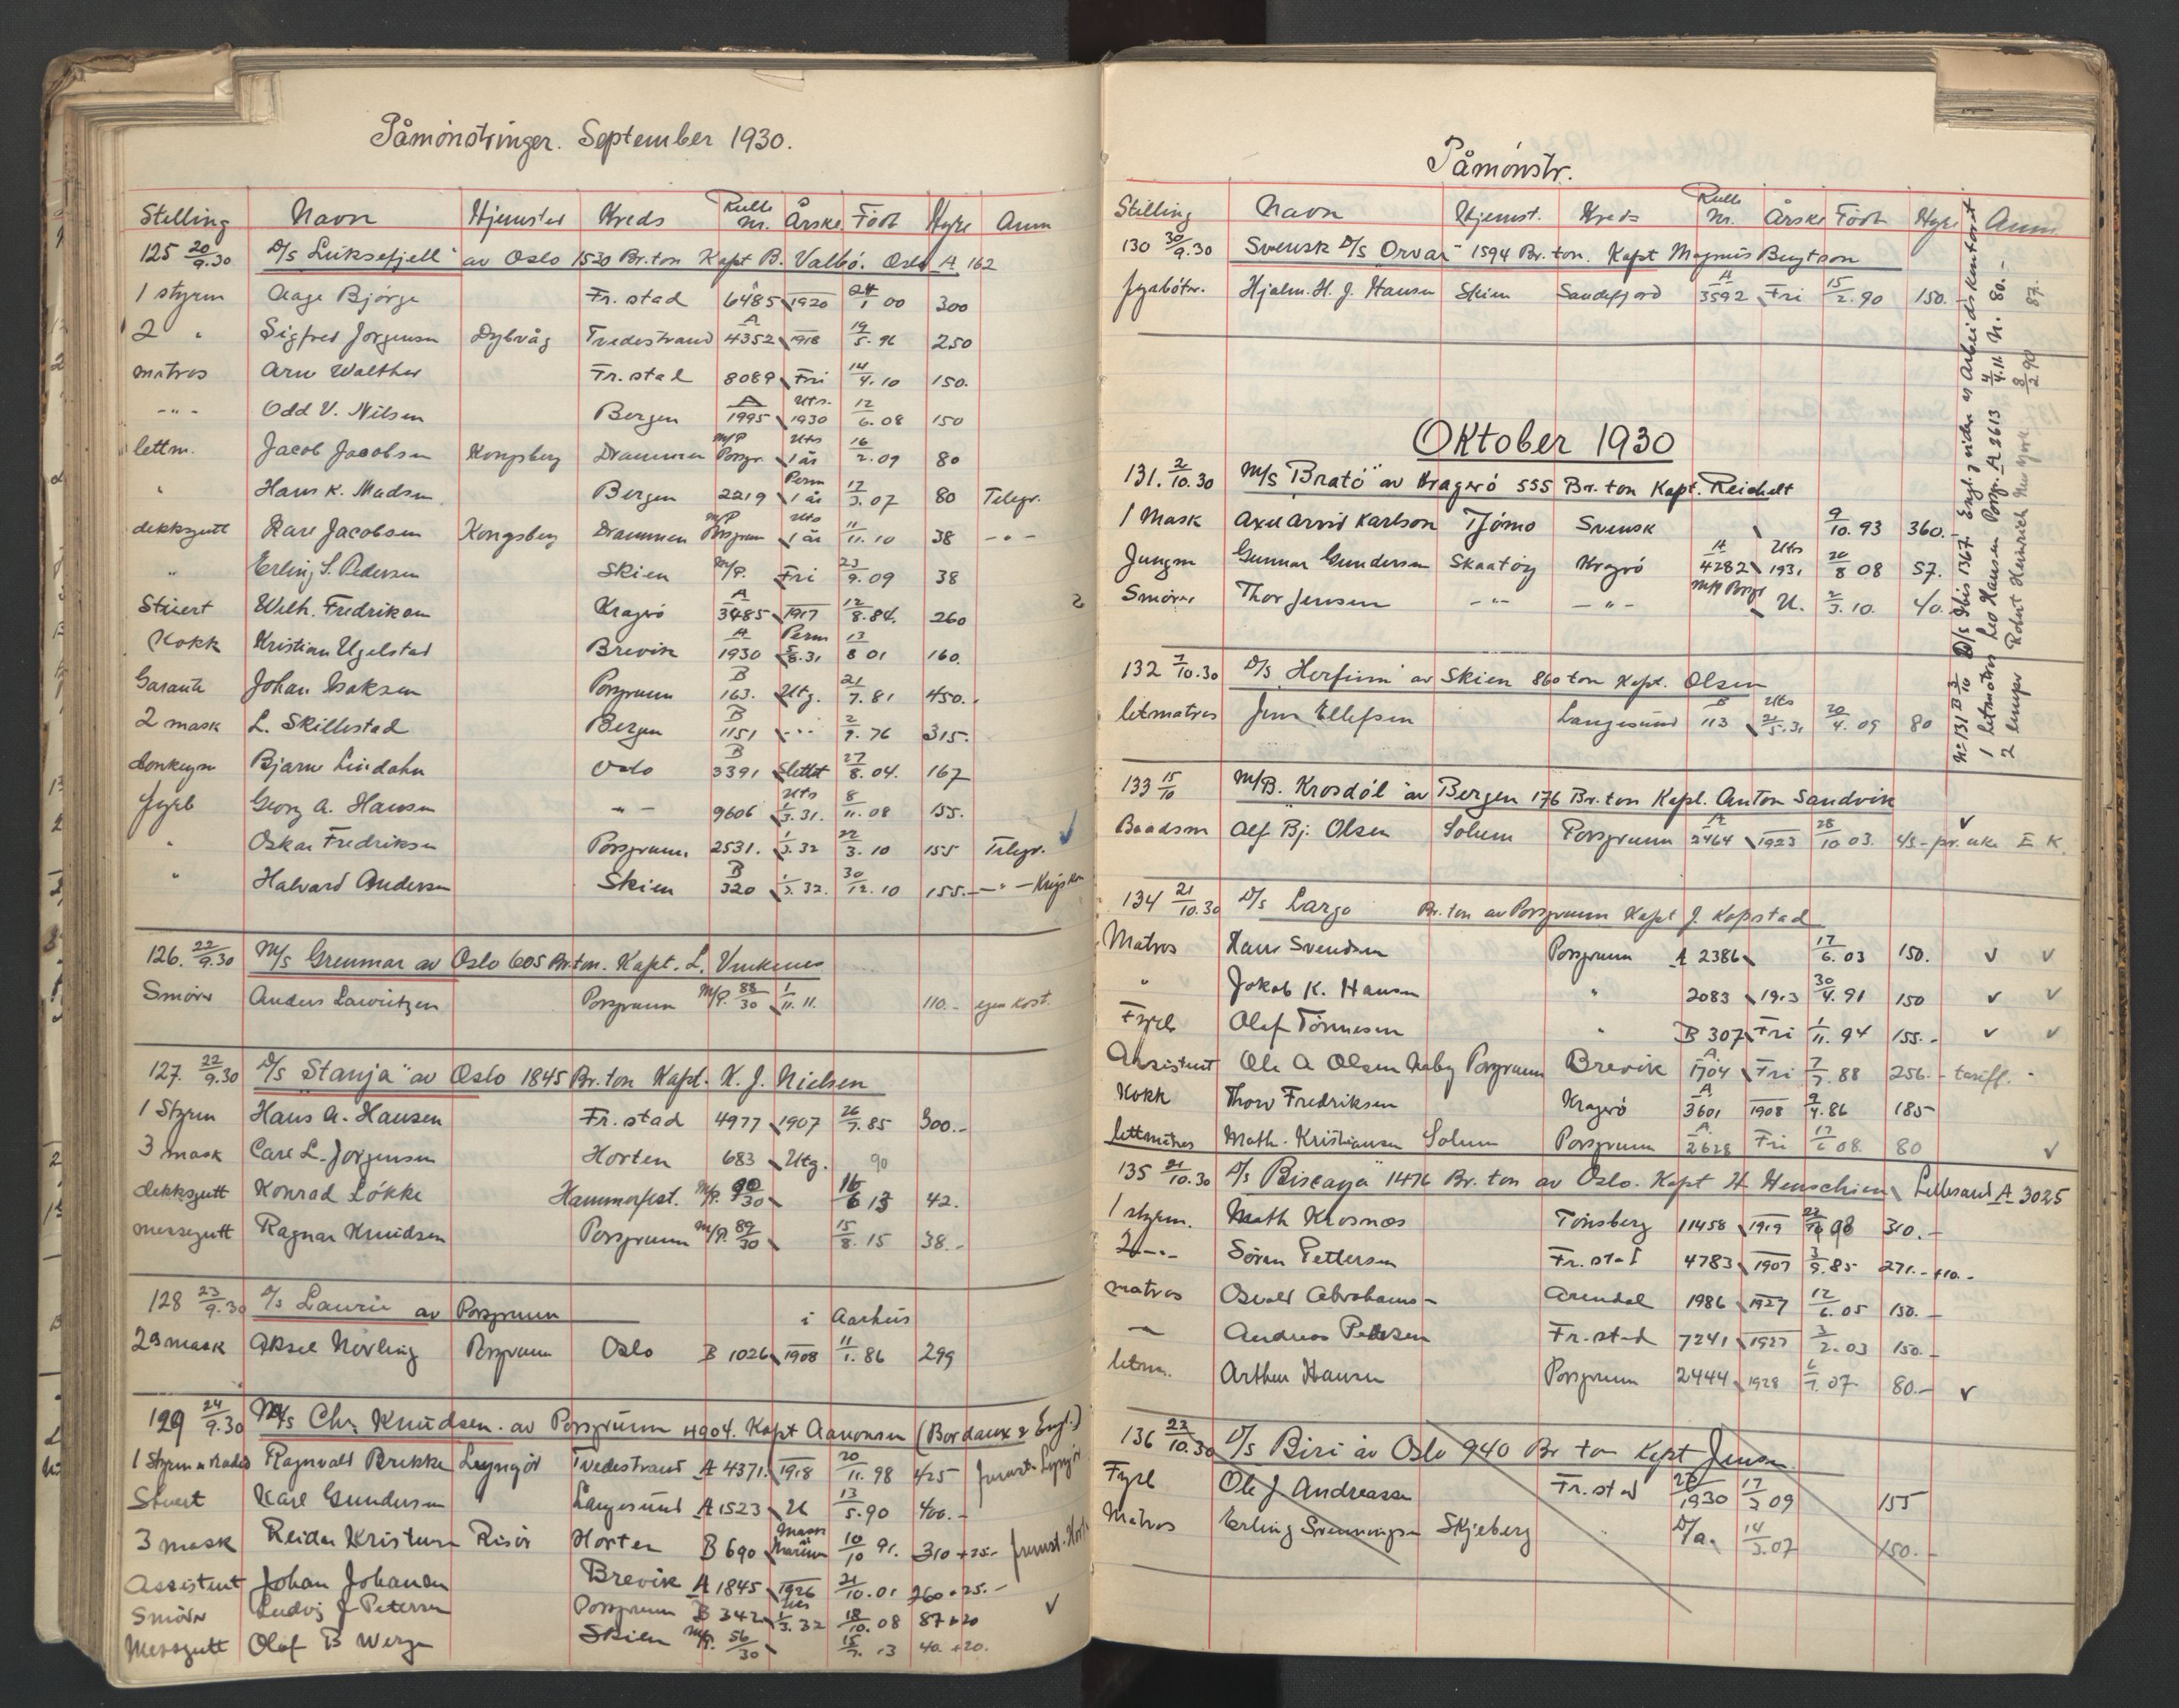 Påmönstringer. September 1930.
Stilling Navn Hjemsted Kreds Rulle Nr. Årskl. Födt Hyre Anm
125 20/9.30 D/s "Luksefjell" av Oslo 1530 Br.ton Kapt B. Valbö. Oslo A 162
1 styrm Aage Björge Fr.stad 6485 1920 24/1 00 300
2 " Sigfred Jörgensen Dybvåg Tvedestrand A 4352 1918 19/5.96 250
matros Arne Walther Fr.stad 8089 Fri 14/4.10 150.
-"- Odd V. Nilsen Bergen A 1995 Uts. 1930 12/6.08 150
lettm. Jacob Jacobsen Kongsberg Drammen M/P Porsgr. Uts 1 år 16/2.09 80
" Hans K. Madsen Bergen 2219 Perm 1 år 12/3.07 80 Telegr.
dekksgutt Kare Jacobsen Kongsberg Drammen M/P Porsgrunn Uts 1 år 11/11.10 38 -"-
" Erling S. Pedersen Skien M/P. Fri 23/9.09 38
Stuert Wilh. Fredriksen Kragerö A 3485 1917 12/8.84. 260
Kokk Kristian Ugelstad Brevik A 1930 Perm 5/8.31 13/8 01 160.
Garante Johan Isaksen Porsgrunn B 163. Utg. 21/7.81 450.
2 mask L. Skillestad Bergen B 1151 -"- 2/9.76 315.
donkeym Bjarne Lindahn Oslo B 3391 Slettet 27/8.04. 167
fyrb Georg A. Hansen -"- 9606 Uts 1/3.31. 8/11.08 155.
" Oskar Fredriksen Porsgrunn 2531. 1/3.32 22/3.10 155 Telegr.
" Halvard Andersen Skien B 320 1/3.32. 30/12.10 155.- -"-
126. 22/9.30 M/s Grenmar av Oslo 605 Br.ton. Kapt. L.
Smörer Anders Lauritzen Porsgrunn M/P. 88/30 1/11.11. 110.- egen kost.
127. 22/9.30 D/s "Stanja" av Oslo 1845 Br.ton Kapt. K. J. Nielsen
1 Styrm Hans A. Hansen Fr.stad 4977 1907 26/7.85 300.-
3 mask Carl L. Jörgensen Horten 683 Utg. 90
dekksgutt Konrad Lökke Hammerfest. M/P. 90/30 16/6 13 42.
messegutt Ragnar Knudsen Porsgrunn M/P. 89/30 15/8.15 38.-
128 23/9.30 D/s Laurie av Porsgrunn i Aarhus
2den mask Aksel Növling Porsgrunn Oslo B 1026 1908 11/1.86 299
129 24/9.30 M/s Chr. Knudsen. av Porsgrunn 4904. Kapt Aanonsen (Bordaux & Engl.)
1 Styrm Ragnvald Brekke Lyngör Tvedestrand A 4371. 1918 20/11.98 425
Stuert Karl Gundersen Langesund A 1523 U 13/5.90 400.-
3 mask Reidar Kristensen Risör Horten B 690 10/10 91. 310 +25.-
Assistent Johan Johansen Brevik A 1845 1926 21/10.01 260+25.-
Smörer Ludvig J Petersen Porsgrunn B 342 Uts 1/3.32 18/10.08 87+20
Messgutt Olaf B Werge Skien M/P. 56/30 15/7.13 40.+20.
Påmönstr.
Stilling Navn Hjemst. Kreds Rulle Nr. Årskl Födt Hyre Anm
130 30/9.30 Svensk D/s "Orvar" 1594 Br.ton. Kapt Magnus Bengtson
fyrböter. Hjalm. H. J. Hansen Skien Sandefjord A 3592 Fri 15/2.90 150.-
Oktober 1930
131. 2/10.30 M/s "Bratö" av Kragerö 555 Br.ton Kapt. Reichelt
1 Mask Axel Arvid Karlson Tjömö Svensk 9/10.93 360.-
Jungm Gunnar Gundersen Skaatöy Kragrö A 4282 Uts 1931 20/8 08 57.
Smörer Thor Jensen -"- -"- M/P Porsgr U. 2/3.10. 40.
132 7/10.30 D/s "Herfinn" av Skien 860 ton Kapt. Olsen
letmatros Jens Ellefsen Langesund B 113 Uts 21/5.31 20/4.09 80
133 15/10 M/B. "Krosdöl" av Bergen 176 Br.ton Kapt. Anton Sandvik
Baadsm Alf Bj. Olsen Solum Porsgrunn A 2464 1923 28/10 03. 45- pr. uke E K.
134 21/10.30 D/s Largo Br.ton av Porsgrunn Kapt J. Kopstad
Matros Hans Svendsen Porsgrunn A 2386 17/6.03 150.
" Jakob K. Hansen " 2083 1913 30/4.91 150
Fyrb Olaf Tönnesen " B 307 Fri 1/11.94 155.-
Assistent Ole A Olsen Aaby Porsgrunn Brevik A 1704 Fri 7/7.88 256.- tariff.
Kokk Thorv Fredriksen Kragerö A 3601 1908 9/4.86 185-
lettmatros Math. Kristiansen Solum Porsgrunn A 2628 Fri 17/6 08. 80
135 21/10.30 D/s "Biscaya" 1476 Br.ton av Oslo. Kapt H Henschien Lillesand A 3025
1 styrm. Math Krosnæs Tönsberg 11458 1919 310.-
2 -"- Sören Pettersen Fr.stad 4783 1907 3/9.85 271.- +10.-
matros Osvald Abrahams- Arendal 1986 1927 12/6.05 150.-
-"- Andreas Pettersen Fr.stad 7241 1927 3/2.03 150.-
letm. Arthur Hansen Porsgrunn 2444 1928 6/7.07. 80.-
136 23/10.30 D/s Biri av Oslo 940 Br ton Kapt Jensen
Fyrb Ole J Andreassen Fr.stad 26/1930 17/3 09 155
Matros Erling Svenningsen Skjeberg " D/a. 14/3.07 150.-
No 131 B 3/10 D/s Ibis 1367. Engl. g siden av Arbeidskontoret
1 letmatros Leo Hansen Porsgr. A 2613 4/4.11. U. 80.-
2 lemper Robert Heinrich New York. 8/2 90 87.-